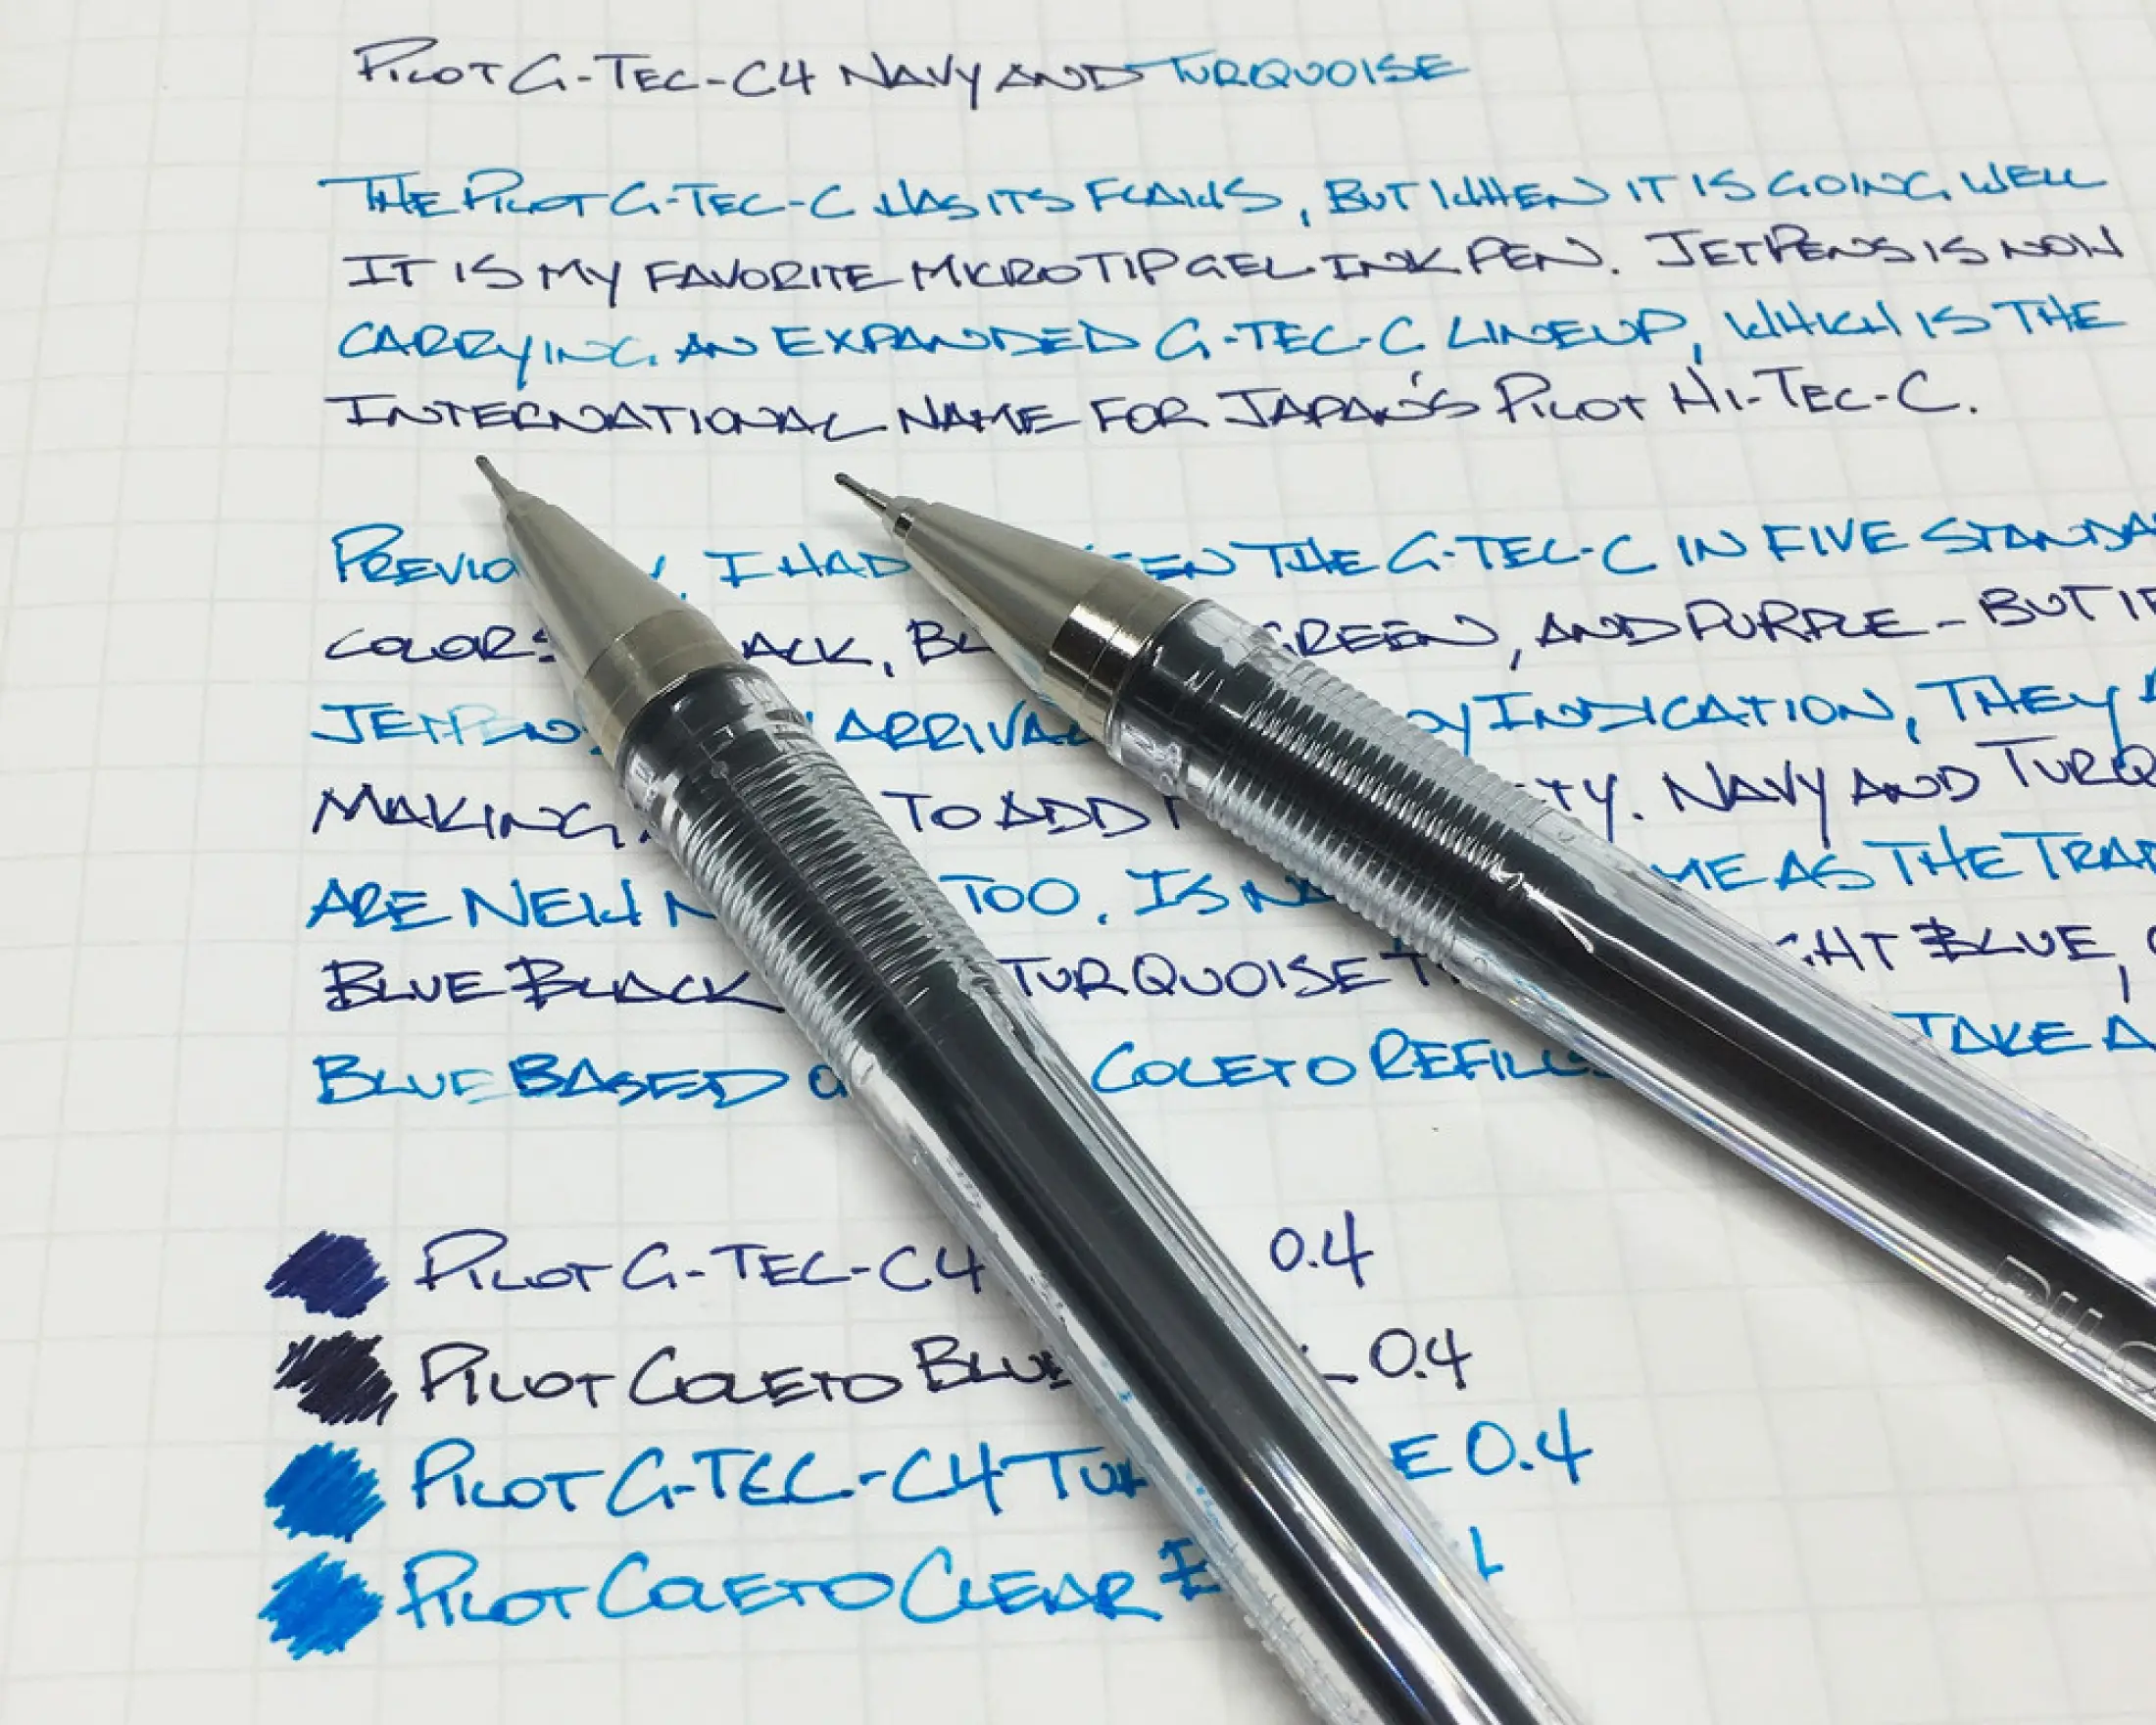 PILOT G-TEC-C4 NAVY AND TURQUOISE
THE PILOT G-TEC-C HAS ITS FLAWS, BUT WHEN IT IS GOING WELL
IT IS MY FAVORITE MICRO TIP GEL INK PEN. JETPENS IS NOW
CARRYING AN EXPANDED G-TEC-C LINEUP, WHICH IS THE
INTERNATIONAL NAME FOR JAPAN'S PILOT HI-TEC-C.
I HAD THE G-TEC-C IN FIVE
GREEN, AND PURPLE - BUT IF
JETPENS INDICATION, THEY
MAKING TO ADD NAVY AND
ARE NEW TOO. IS AS THE
BLUE BLACK TURQUOISE BLUE,
BLUE BASED COLETO REFILLS TAKE A
PILOT G-TEC-C4 0.4
PILOT COLETO BLUE 0.4
PILOT G-TEC-C4 0.4
PILOT COLETO CLEAR
PILO